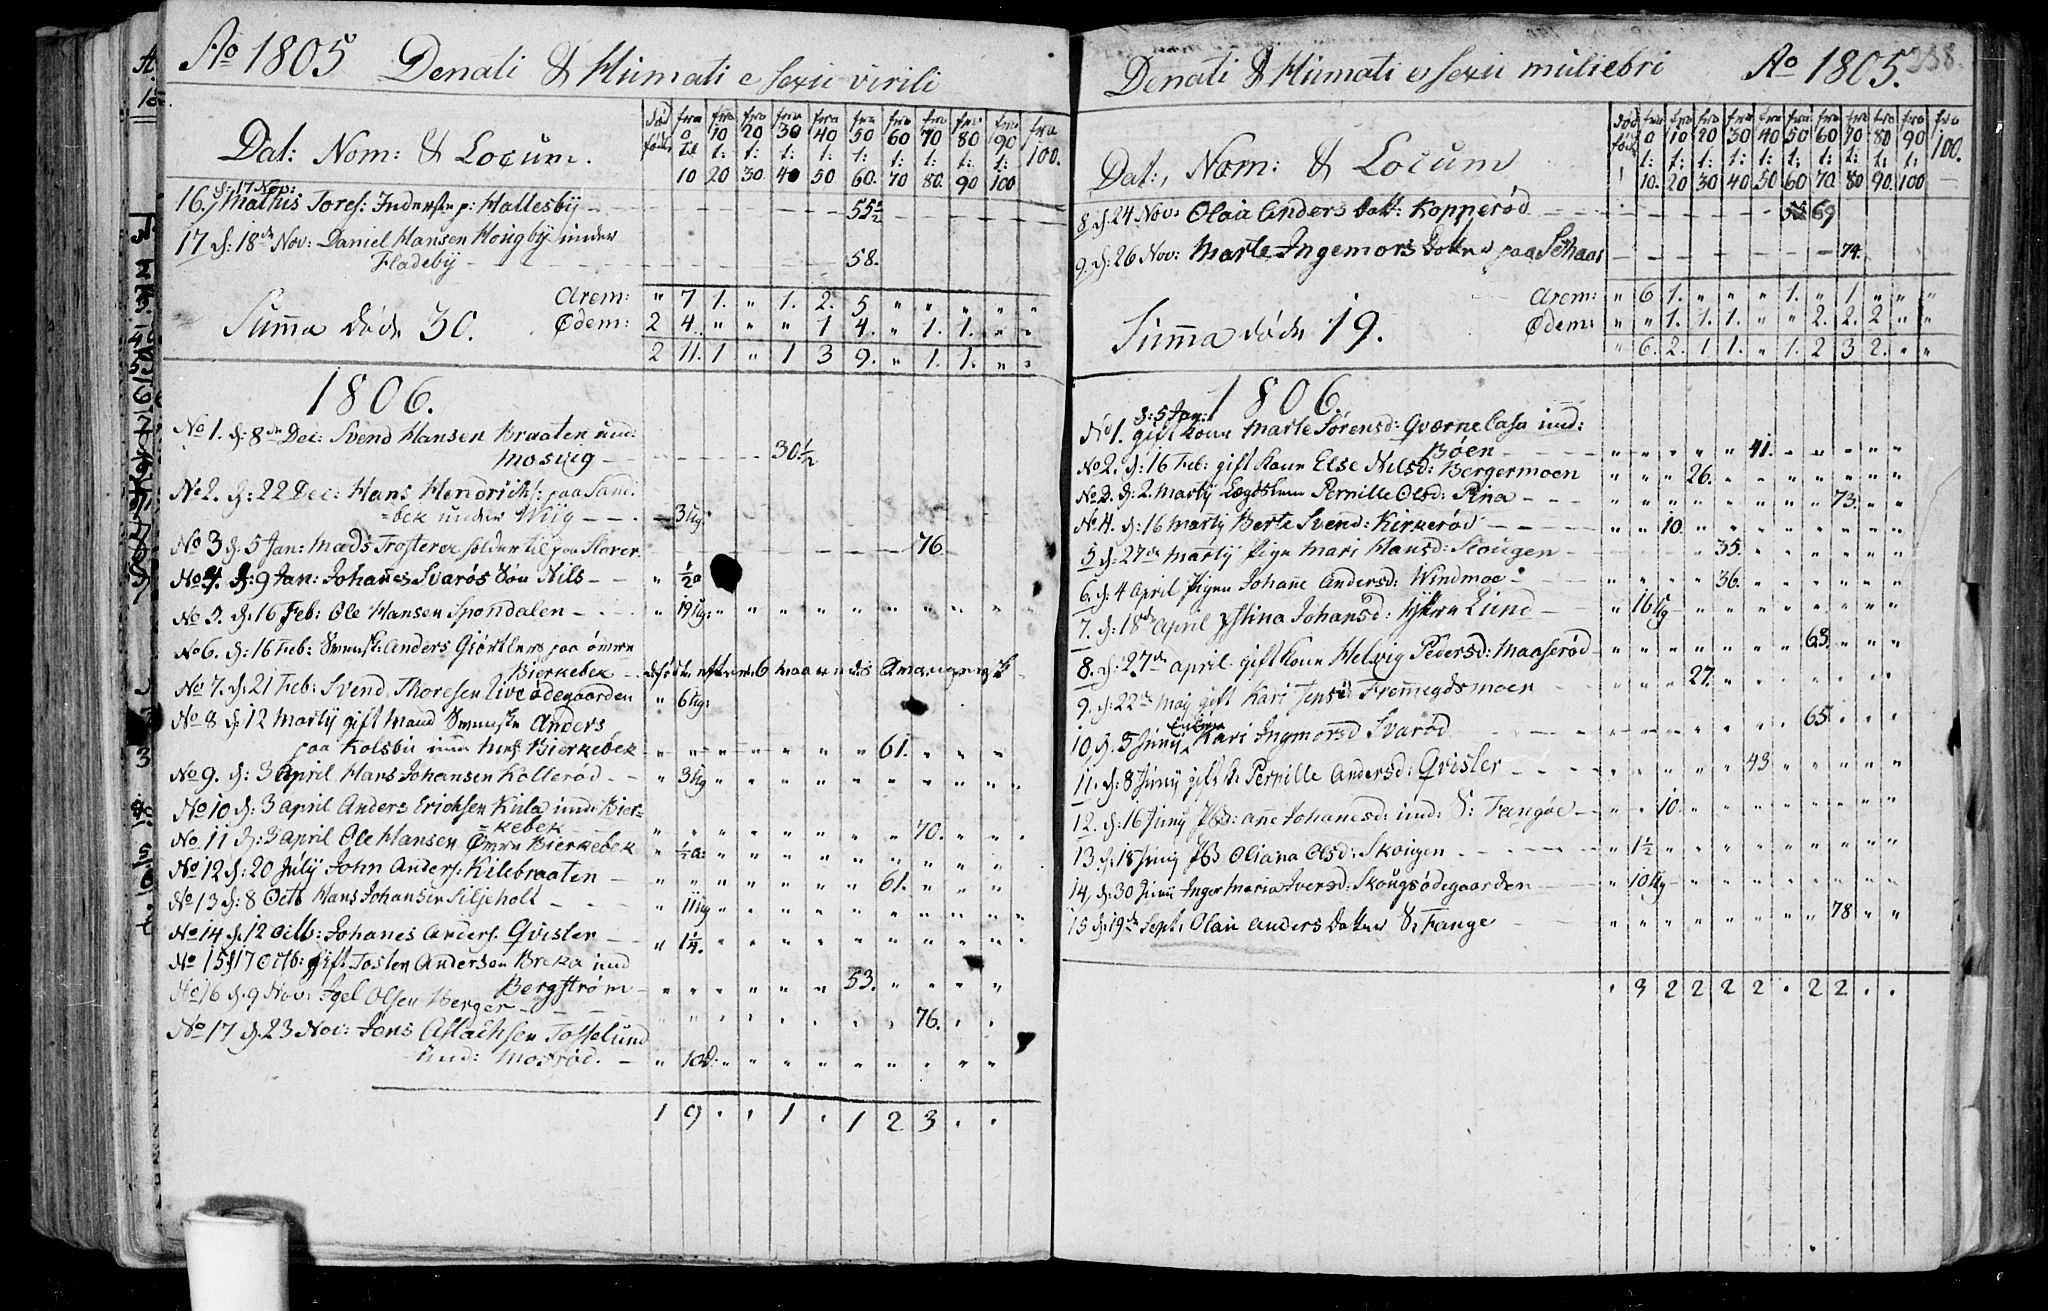 Ao 1805 Denati & Humati e sexu virili
Dat: Nom: & Locum.
død fødte | fra 0 til 10 | fra 10 t: 20 | fra 20 t: 30 | fra 30 t: 40 | fra 40 t: 50 | fra 50 t: 60. | fra 60 t: 70 | fra 70 t: 80. | fra 80 t: 90 | fra 90 t: 100 | fra 100.
16. d: 17 Nov: Mathis Tores: Inderste p: Hallesby 55½
17 d: 18de Nov: Daniel Hansen Hougby under
Fladeby 58.
Arem: " 7 1. " 1. 2. 5 " " " " "
Summa døde 30. Ødem: 2 4. " " " 1 4. " 1. 1. " "
2 11. 1 " 1 3 9. " 1. 1. " "
1806.
No 1. d: 8de Dec: Svend Hansen Braaten und:
Moswig 30½
No 2. d: 22 Dec: Hans Hendrichs: paa Sand
=bek under Wiig 3 Ug:
No 3 d. 5 Jan: Mads Trosterer holder til paa Storer. 76.
No 4. d: 9 Jan: Johannes Svarøs Søn Nils " ½ a
No 5. d. 16 Feb: Ole Hansen Spondalen " 19 Ug: " " " " " " " " "
No 6. d: 16 Feb: Anders paa ømre
Bierkebek
No 7. d: 21 Feb: Svend Thoresen Ødegaarden " 6 Ug:
No 8 d: 12 Martij gift Mand Anders
paa Kolsbu Bierkebek " " " " " " " 61. " " "
No 9. d: 3 April Hans Johansen Kollerød " 3 Ug " " " " " " " " " "
No 10 d: 3 April Anders Erichsen Kula und: Bier-
=kebek " " " " " " " " 70. " " "
No 11 d: 3 April Ole Hansen Ømre Bierkebek " ½ a: " " " " " " " " "
No 12 d: 20 July John Anders: Kilebraaten " " " " " " " 61. " " "
No 13 d: 8 Octb Hans Johansen Siljeholt " 11 Ug " " " " " " " " " "
No 14 d. 12 Octb: Johanes Anders: Qvisler " 1¼. " " " " " " " " " "
No 15 d 17 Octb: gift Tosten Andersen Breka und
Bergstrøm " " " " " " 53. " " " "
No 16 d. 9 Nov: Olsen Berger " " " " " " " " 76. " "
No 17 d. 23 Nov: Jens Aslachsen Tosselund
und: Mosrød. " 10 d. " " " " " " " " "
1 9 " " 1 " 1 2 3 " "
Denati & Humati e sexu muliebri Ao 1805. 338.
Dat:, Nom: & Locum
død fødte | fra 0 t: 10. | fra 10 t: 20 | fra 20 t: 30 | fra 30 t: 40 | fra 40 t: 50 | fra 50 t: 60 | fra 60 t: 70 | fra 70 t: 80 | fra 80 t: 90. | fra 90 t: 100 | fra 100.
8 d. 24 Nov: Olaa Anders Datt: Kopperød 69
9. d: 26 Nov: Marte Ingemors Datter paa 74.
Arem: " 6 1. " " " 1. " 1 " " "
Summa døde 19. Ødem: " " 1. 1. 1. " " 2. 2. 2 " "
" 6. 2. 1 1. " 1. 2 3 2. " "
1806
d: 5 Jan:
No 1. gift Kone Marte Sørensd: Qværnelasa und:
Bøen 41.
No 2. d: 16 Feb: gift Kone Else Nilsd: Bergermoen 26.
No 3. d: 2. Martij Lægdslem Pernille Olsd: Pina 73.
No 4. d: 16 Martij Berte Svend: Kirkerød 10.
5 d: 27de Martij Pige Mari Hansd: Skougen 35.
6. d: 4 April Pigen Johane Andersd: Windmoe 36.
7. d: 18de April Stina Johansd: Lund " 16 Ug
8. d: 27de April gift Kone Helvig Pedersd: Maaserød 63.
9. d: 22de May gift Kari Jensd Fremegdsmoen 27.
10. d. 5 Junij Enken Kari Ingmorsd Svarød 65
11. d: 8 Junij gift k: Pernille Andersd: Qvisler 43.
12. d: 16 Junij ane Johanesd: und: S: Fangøe 10.
13 d: 18 Junij Oliana Olsd: Skougen " 1½
14, d: 30 Junij Inger Maria Iversd: Skougsødegaarden " 10 Ug
15 d: 19de Sept: Olaa anders Datter S: Fange 78
" 3 2 2 2 2 " 2 2 " "